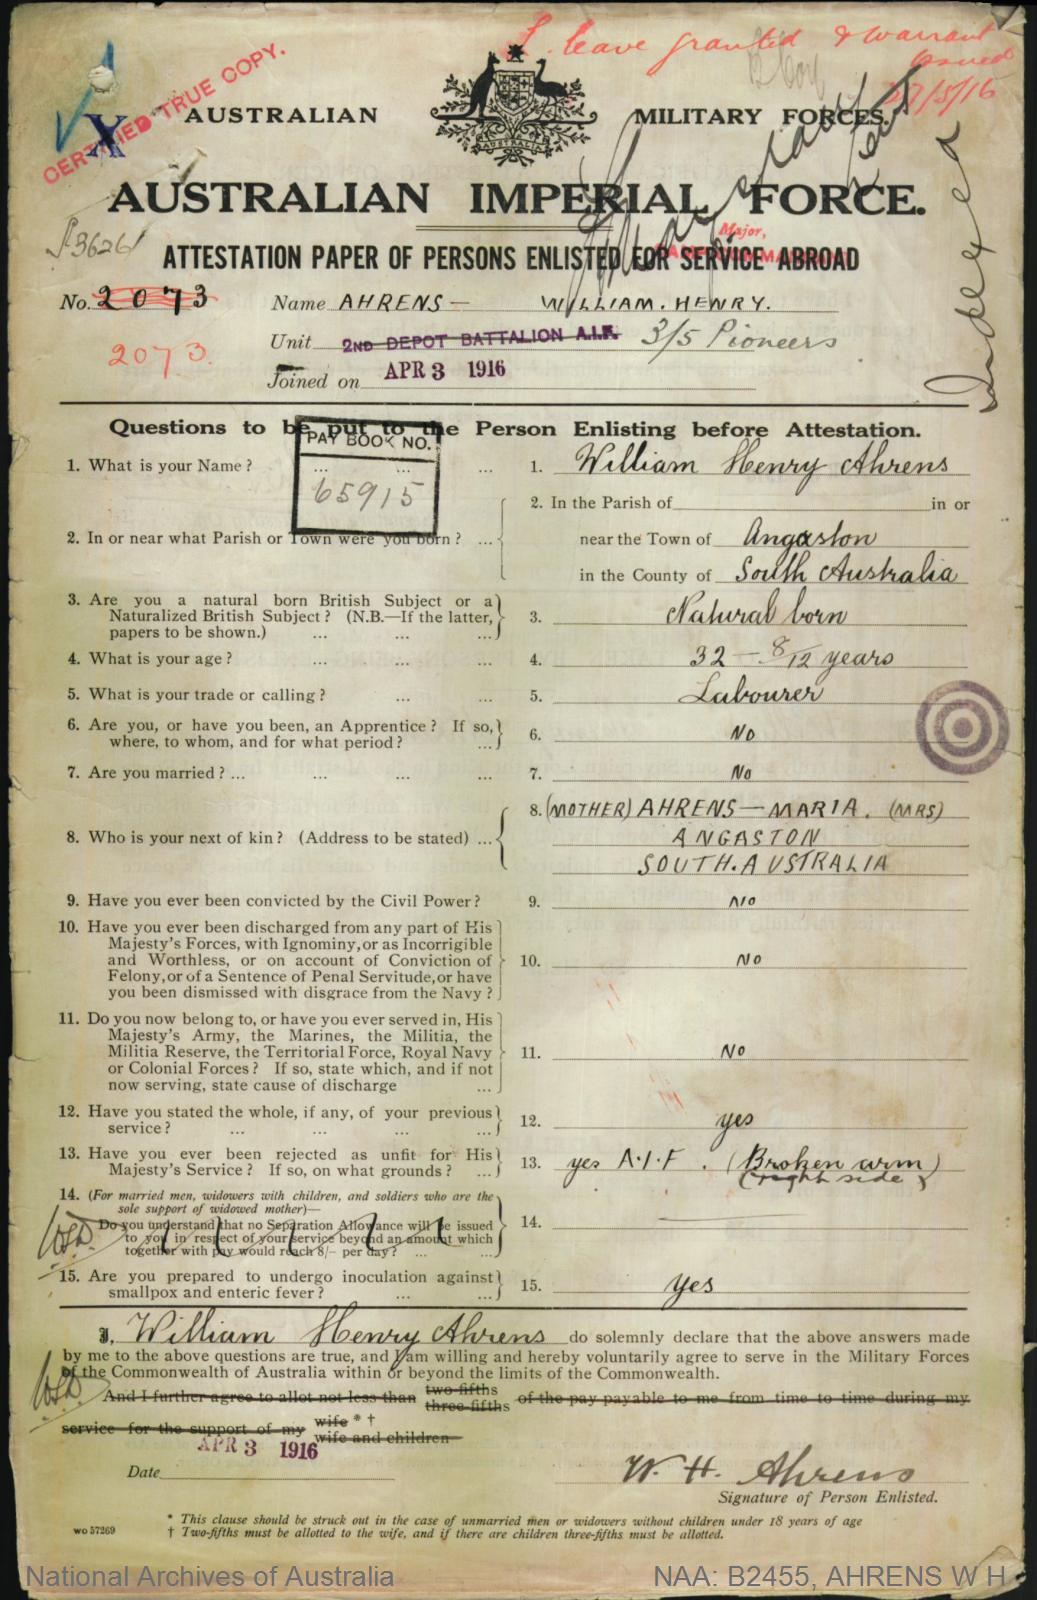 L. leave granted & warrant
issued
27/5/16
CERTIFIED TRUE COPY.
X
AUSTRALIAN MILITARY FORCES.
AUSTRALIA
AUSTRALIAN IMPERIAL FORCE.
Major,
CAMP COMMANDANT
Indexed
J.3626
ATTESTATION PAPER OF PERSONS ENLISTED FOR SERVICE ABROAD
No. 2073 Name AHRENS — WILLIAM. HENRY.
2073. Unit 2ND DEPOT BATTALION A.I.F. 3/5 Pioneers
Joined on APR 3 1916
Questions to be put to the Person Enlisting before Attestation.
PAY BOOK NO.
65915
1. What is your Name? ... ... ... 1. William Henry Ahrens
2. In the Parish of in or
2. In or near what Parish or Town were you born? ... near the Town of Angaston
in the County of South Australia
3. Are you a natural born British Subject or a
Naturalized British Subject? (N.B.—If the latter,
papers to be shown.) ... ... ... 3. Natural born
4. What is your age? ... ... ... 4. 32 - 8/12 years
5. What is your trade or calling? ... ... 5. Labourer
6. Are you, or have you been, an Apprentice? If so,
where, to whom, and for what period? ... 6. No
7. Are you married? ... ... ... ... 7. No
8. (MOTHER) AHRENS — MARIA. (MRS)
8. Who is your next of kin? (Address to be stated) ... ANGASTON
SOUTH. AUSTRALIA
9. Have you ever been convicted by the Civil Power? 9. No
10. Have you ever been discharged from any part of His
Majesty's Forces, with Ignominy, or as Incorrigible
and Worthless, or on account of Conviction of
Felony, or of a Sentence of Penal Servitude, or have
you been dismissed with disgrace from the Navy? 10. No
11. Do you now belong to, or have you ever served in, His
Majesty's Army, the Marines, the Militia, the
Militia Reserve, the Territorial Force, Royal Navy
or Colonial Forces? If so, state which, and if not
now serving, state cause of discharge ... 11. No
12. Have you stated the whole, if any, of your previous
service? ... ... ... ... 12. yes
13. Have you ever been rejected as unfit for His
Majesty's Service? If so, on what grounds? ... 13. yes A.I.F. (Broken arm)
(right side)
14. (For married men, widowers with children, and soldiers who are the
sole support of widowed mother)—
Do you understand that no Separation Allowance will be issued
to you in respect of your service beyond an amount which
together with pay would reach 8/- per day? ... ... 14. —
15. Are you prepared to undergo inoculation against
smallpox and enteric fever? ... ... 15. yes
I, William Henry Ahrens do solemnly declare that the above answers made
by me to the above questions are true, and I am willing and hereby voluntarily agree to serve in the Military Forces
of the Commonwealth of Australia within or beyond the limits of the Commonwealth.
And I further agree to allot not less than two-fifths three-fifths of the pay payable to me from time to time during my
service for the support of my wife * † wife and children
APR 3 1916
Date
W. H. Ahrens
Signature of Person Enlisted.
* This clause should be struck out in the case of unmarried men or widowers without children under 18 years of age
† Two-fifths must be allotted to the wife, and if there are children three-fifths must be allotted.
WO 57269
National Archives of Australia NAA: B2455, AHRENS W H